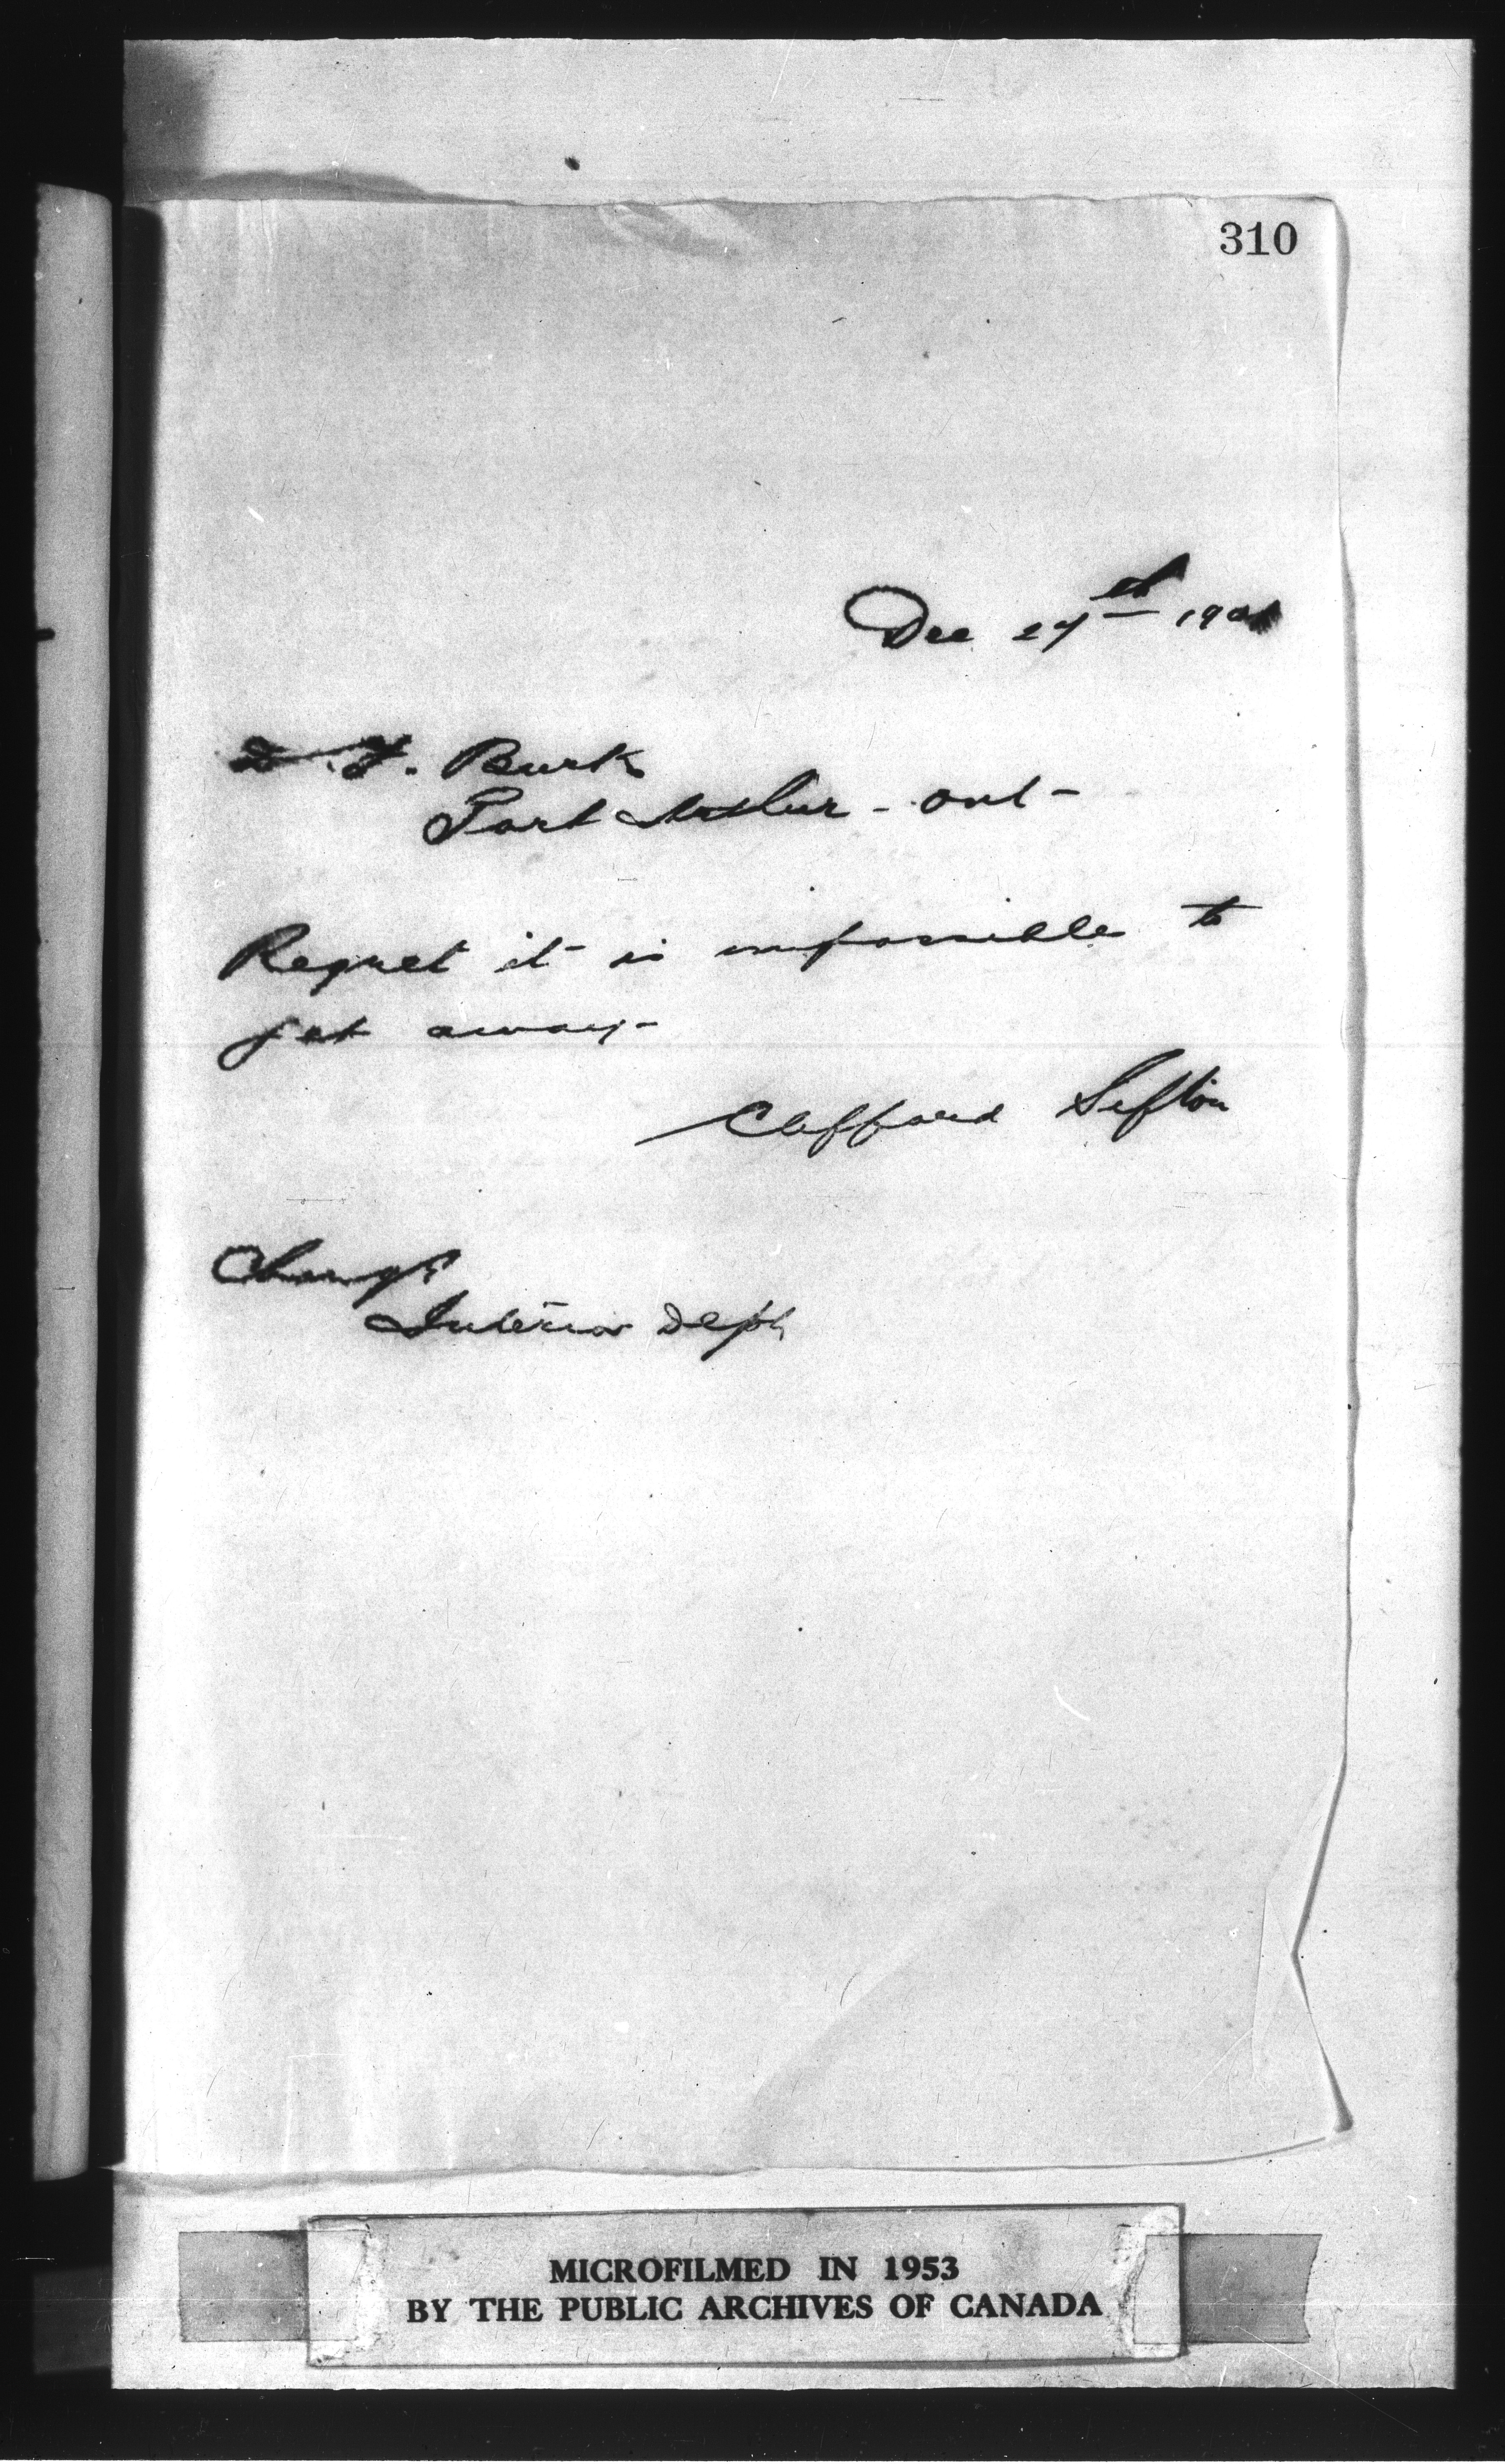 310
Dec 27th 1901
D. F. Burk
Port Arthur - Ont -
Regret it is impossible to
get away -
Clifford Sifton
Charge
Interior Dept
MICROFILMED IN 1953
BY THE PUBLIC ARCHIVES OF CANADA